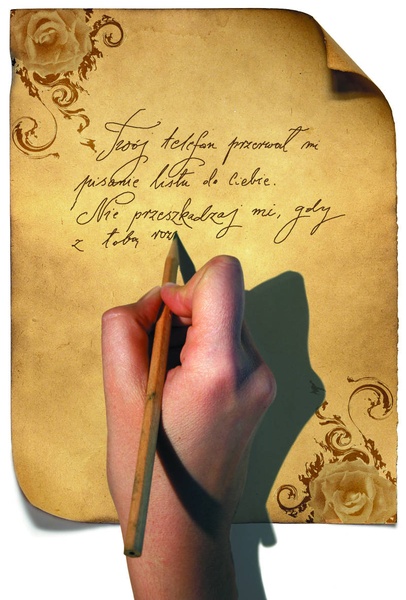 Twój telefon przerwał mi
pisanie listu do Ciebie.
Nie przeszkadzaj mi, gdy
z tobą roz